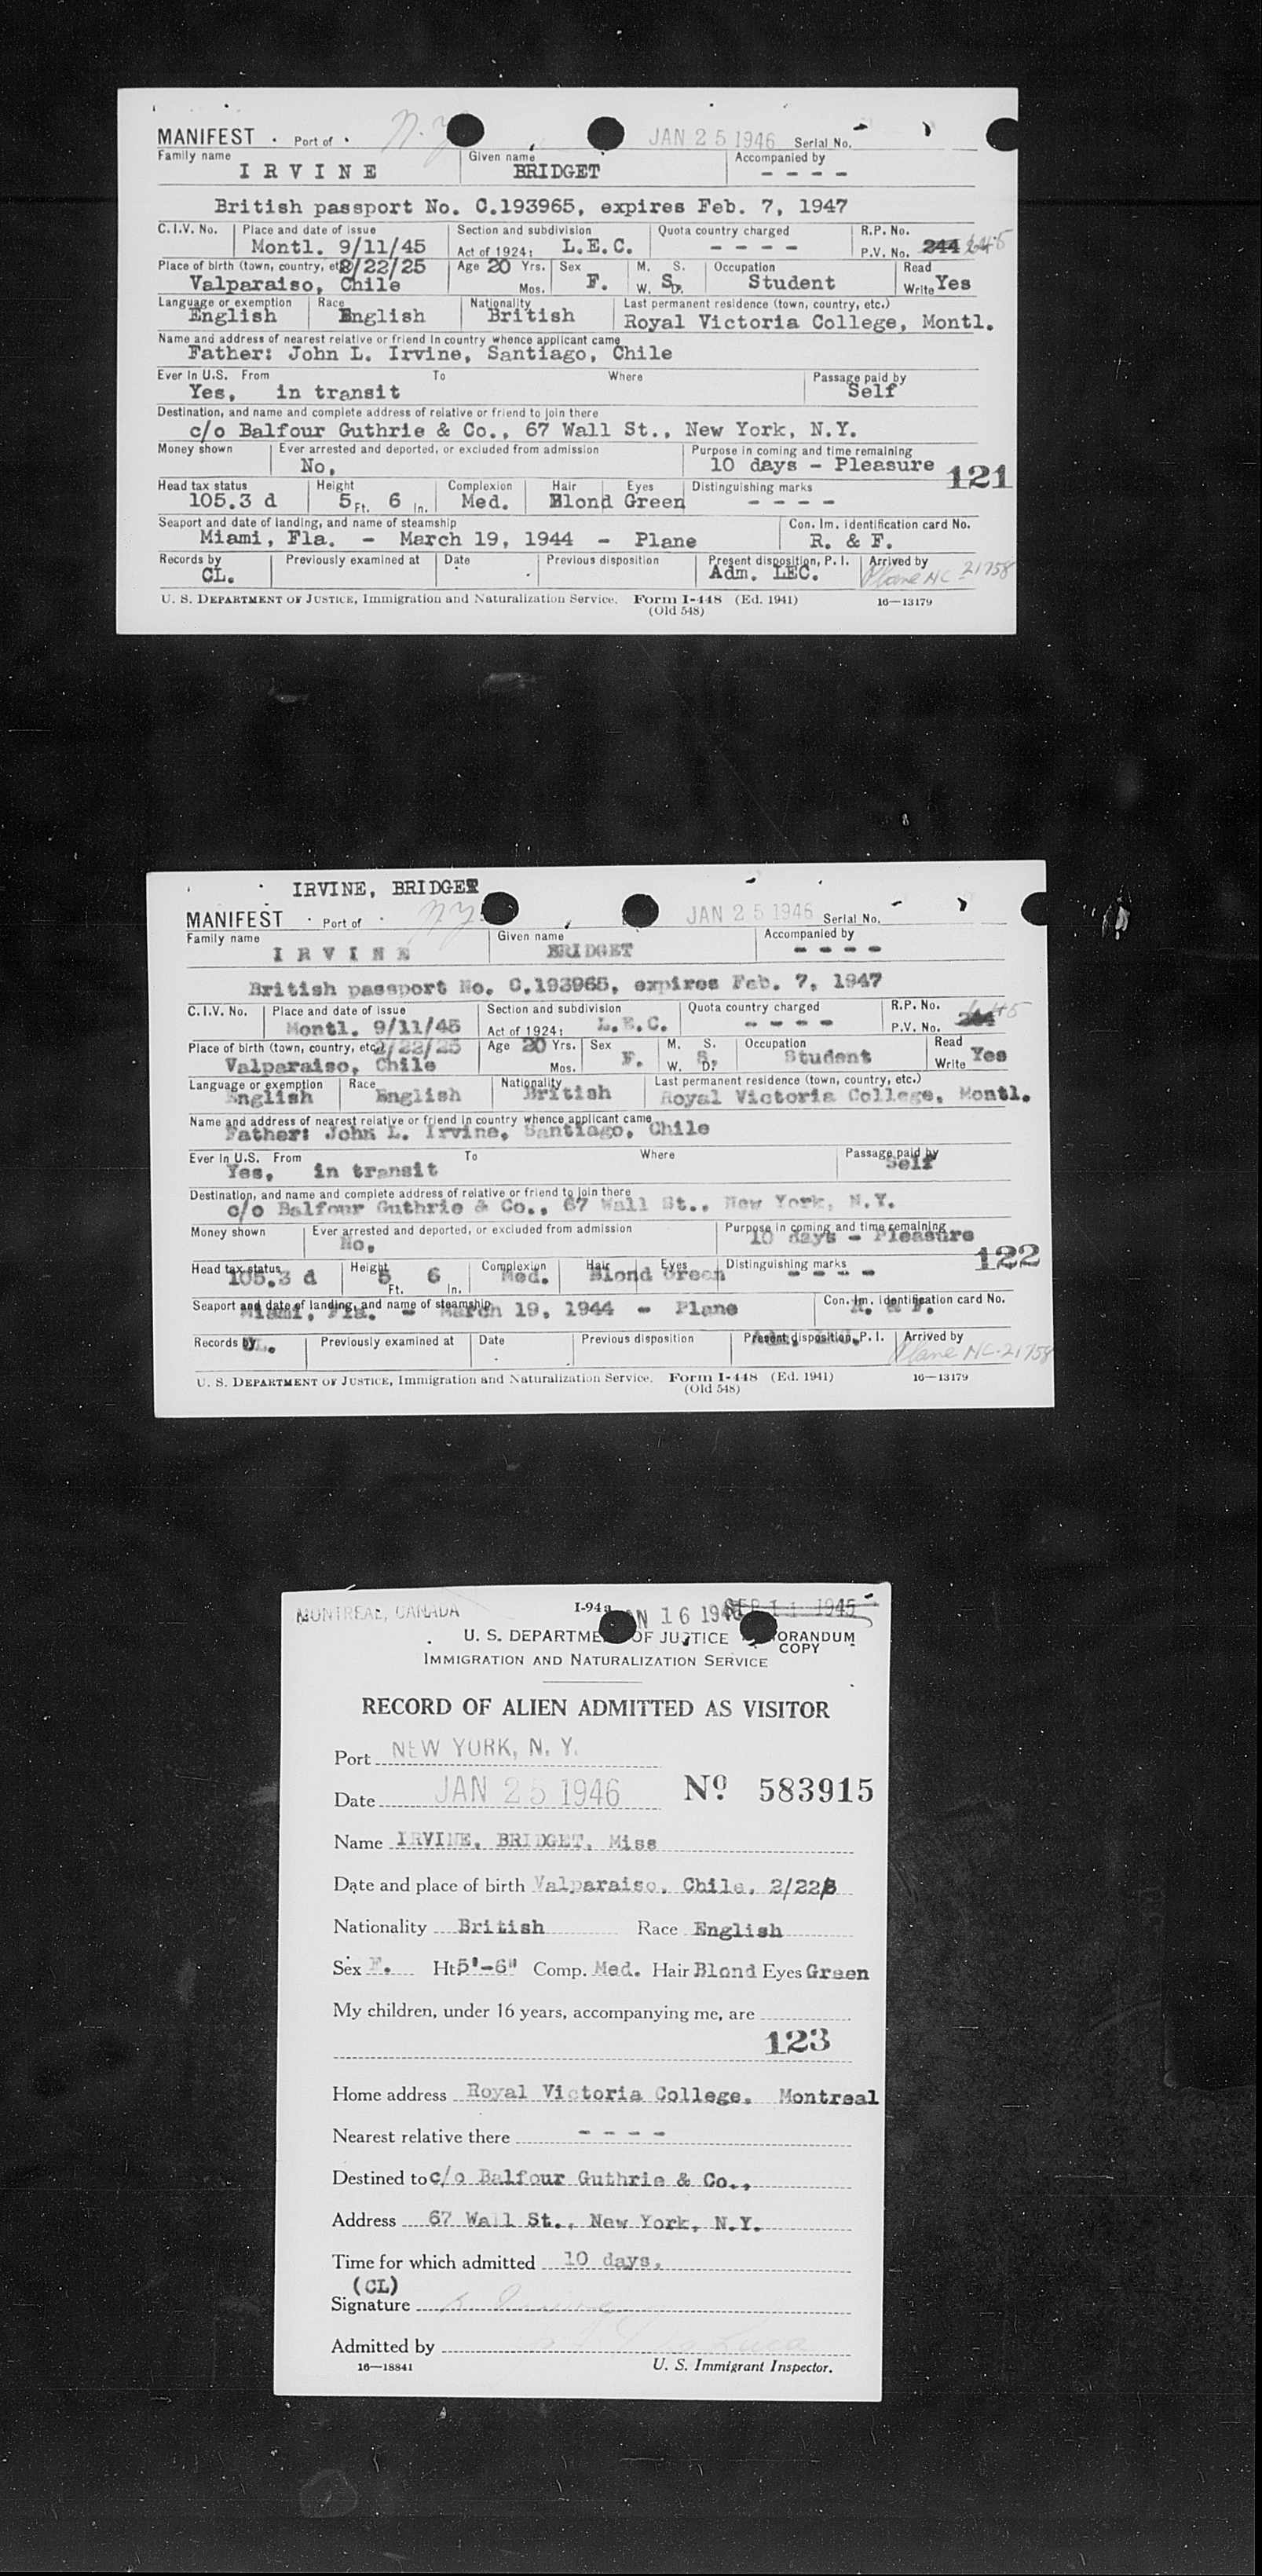 MANIFEST Port of N.Y. JAN 25 1946 Serial No.
Family name Given name Accompanied by
IRVINE BRIDGET - - - -
British passport No. C.193965, expires Feb. 7, 1947
C.I.V. No. Place and date of issue Section and subdivision Quota country charged R.P. No.
Montl. 9/11/45 Act of 1924: L.E.C. - - - - P.V. No. 244
Place of birth (town, country, etc.) 2/22/25 Age 20 Yrs. Sex M. S. Occupation Read
Valparaiso, Chile Mos. F. W. S. D. Student Write Yes
Language or exemption Race Nationality Last permanent residence (town, country, etc.)
English English British Royal Victoria College, Montl.
Name and address of nearest relative or friend in country whence applicant came
Father: John L. Irvine, Santiago, Chile
Ever in U.S. From To Where Passage paid by
Yes, in transit Self
Destination, and name and complete address of relative or friend to join there
c/o Balfour Guthrie & Co., 67 Wall St., New York, N.Y.
Money shown Ever arrested and deported, or excluded from admission Purpose in coming and time remaining
No, 10 days - Pleasure 121
Head tax status Height Complexion Hair Eyes Distinguishing marks
105.3 d 5 Ft. 6 In. Med. Blond Green - - - -
Seaport and date of landing, and name of steamship Con. Im. identification card No.
Miami, Fla. - March 19, 1944 - Plane R. & F.
Records by Previously examined at Date Previous disposition Present disposition, P. I. Arrived by
CL. Adm. LEC. Plane NC 21758
U. S. DEPARTMENT OF JUSTICE, Immigration and Naturalization Service. Form I-448 (Ed. 1941) 16—13179
(Old 548)
IRVINE, BRIDGET
MANIFEST Port of N.Y. JAN 25 1946 Serial No.
Family name Given name Accompanied by
IRVINE BRIDGET - - - -
British passport No. C.193965, expires Feb. 7, 1947
C.I.V. No. Place and date of issue Section and subdivision Quota country charged R.P. No.
Montl. 9/11/45 Act of 1924: L.E.C. - - - - P.V. No. 244
Place of birth (town, country, etc.) 2/22/25 Age 20 Yrs. Sex M. S. Occupation Read
Valparaiso, Chile Mos. F. W. S. D. Student Write Yes
Language or exemption Race Nationality Last permanent residence (town, country, etc.)
English English British Royal Victoria College, Montl.
Name and address of nearest relative or friend in country whence applicant came
Father: John L. Irvine, Santiago, Chile
Ever in U.S. From To Where Passage paid by
Yes, in transit Self
Destination, and name and complete address of relative or friend to join there
c/o Balfour Guthrie & Co., 67 Wall St., New York, N.Y.
Money shown Ever arrested and deported, or excluded from admission Purpose in coming and time remaining
No, 10 days - Pleasure 122
Head tax status Height Complexion Hair Eyes Distinguishing marks
105.3 d 5 Ft. 6 In. Med. Blond Green - - - -
Seaport and date of landing, and name of steamship Con. Im. identification card No.
Miami, Fla. - March 19, 1944 - Plane R. & F.
Records by Previously examined at Date Previous disposition Present disposition, P. I. Arrived by
CL. Plane NC-21758
U. S. DEPARTMENT OF JUSTICE, Immigration and Naturalization Service. Form I-448 (Ed. 1941) 16—13179
(Old 548)
MONTREAL, CANADA I-94a JAN 16 1946 SEP 11 1945
U. S. DEPARTMENT OF JUSTICE MEMORANDUM
COPY
IMMIGRATION AND NATURALIZATION SERVICE
RECORD OF ALIEN ADMITTED AS VISITOR
Port NEW YORK, N. Y.
Date JAN 25 1946 No 583915
Name IRVINE, BRIDGET, Miss
Date and place of birth Valparaiso, Chile, 2/22
Nationality British Race English
Sex F. Ht 5'-6" Comp. Med. Hair Blond Eyes Green
My children, under 16 years, accompanying me, are
123
Home address Royal Victoria College, Montreal
Nearest relative there - - - -
Destined to c/o Balfour Guthrie & Co.,
Address 67 Wall St., New York, N.Y.
Time for which admitted 10 days.
(CL)
Signature B. Irvine
Admitted by
16—18841 U. S. Immigrant Inspector.